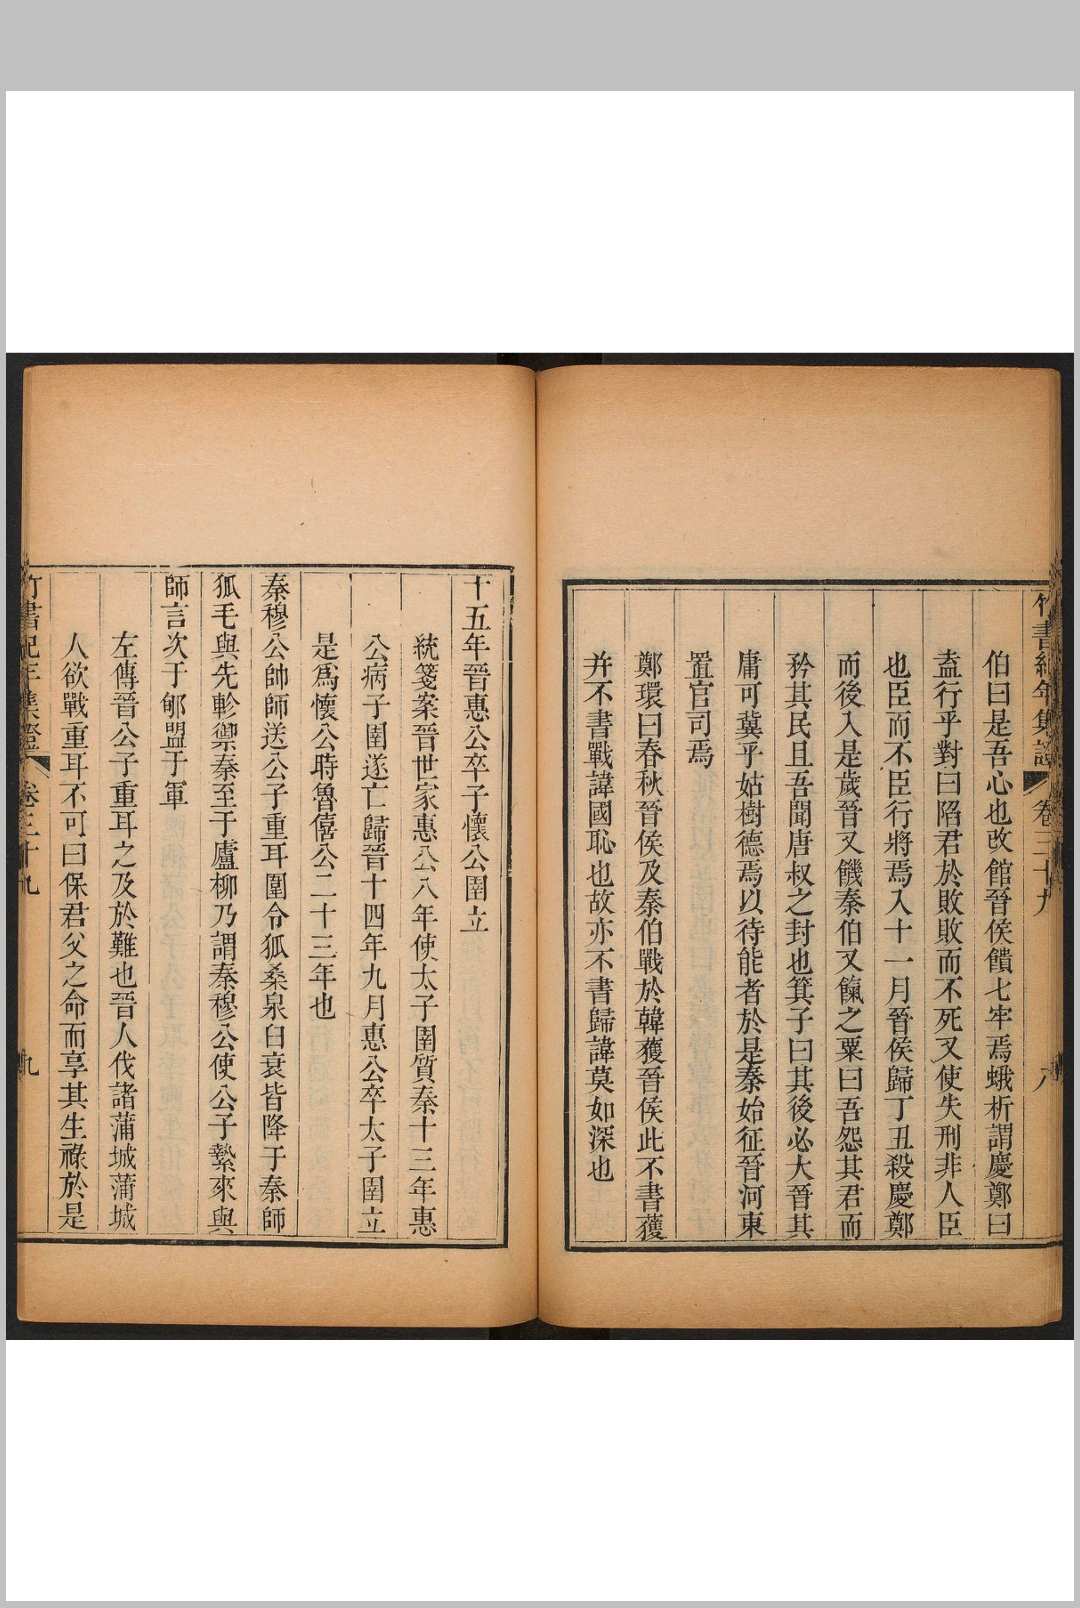 竹書紀年集證 卷三十九 八
伯曰是吾心也改館晉侯饋七牢焉蛾析謂慶鄭曰
盍行乎對曰陷君於敗敗而不死又使失刑非人臣
也臣而不臣行將焉入十一月晉侯歸丁丑殺慶鄭
而後入是歲晉又饑秦伯又餼之粟曰吾怨其君而
矜其民且吾聞唐叔之封也箕子曰其後必大晉其
庸可冀乎姑樹德焉以待能者於是秦始征晉河東
置官司焉
鄭環曰春秋晉侯及秦伯戰於韓獲晉侯此不書獲
幷不書戰諱國恥也故亦不書歸諱莫如深也
十五年晉惠公卒子懷公圉立
統箋案晉世家惠公八年使太子圉質秦十三年惠
公病子圉遂亡歸晉十四年九月惠公卒太子圉立
是爲懷公時魯僖公二十三年也
秦穆公帥師送公子重耳圍令狐桑泉臼衰皆降于秦師
狐毛與先軫禦秦至于廬柳乃謂秦穆公使公子縶來與
師言次于郇盟于軍
左傳晉公子重耳之及於難也晉人伐諸蒲城蒲城
人欲戰重耳不可曰保君父之命而享其生祿於是
竹書紀年集證 卷三十九 九